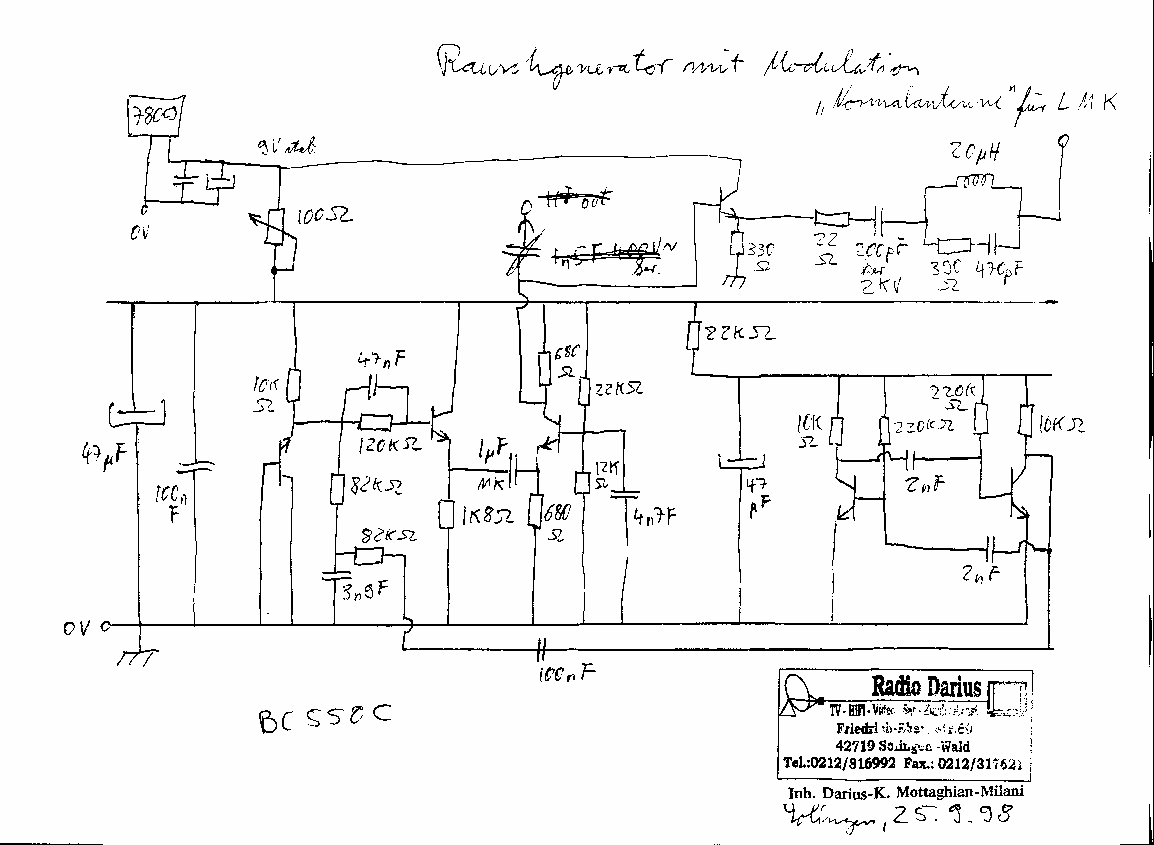 Rauschgenerator mit Modulation
"Normalantenne" für L M K
7809
9V stab.
0V
100Ω
HF out
1n5F 400V~
Ser.
20µH
330
Ω
22
Ω
200pF
2KV
390
Ω
470pF
22KΩ
47nF
10K
Ω
120KΩ
680
Ω
22KΩ
47µF
100n
F
82KΩ
1µF
MK
12K
Ω
1K8Ω
680
Ω
4n7F
82KΩ
3n9F
10K
Ω
220KΩ
220K
Ω
10KΩ
47
µF
2nF
2nF
0V
100nF
Radio Darius
42719 Solingen -Wald
Tel.:0212/816992 Fax.: 0212/317621
Inh. Darius-K. Mottaghian-Milani
Solingen, 25.9.98
BC550C